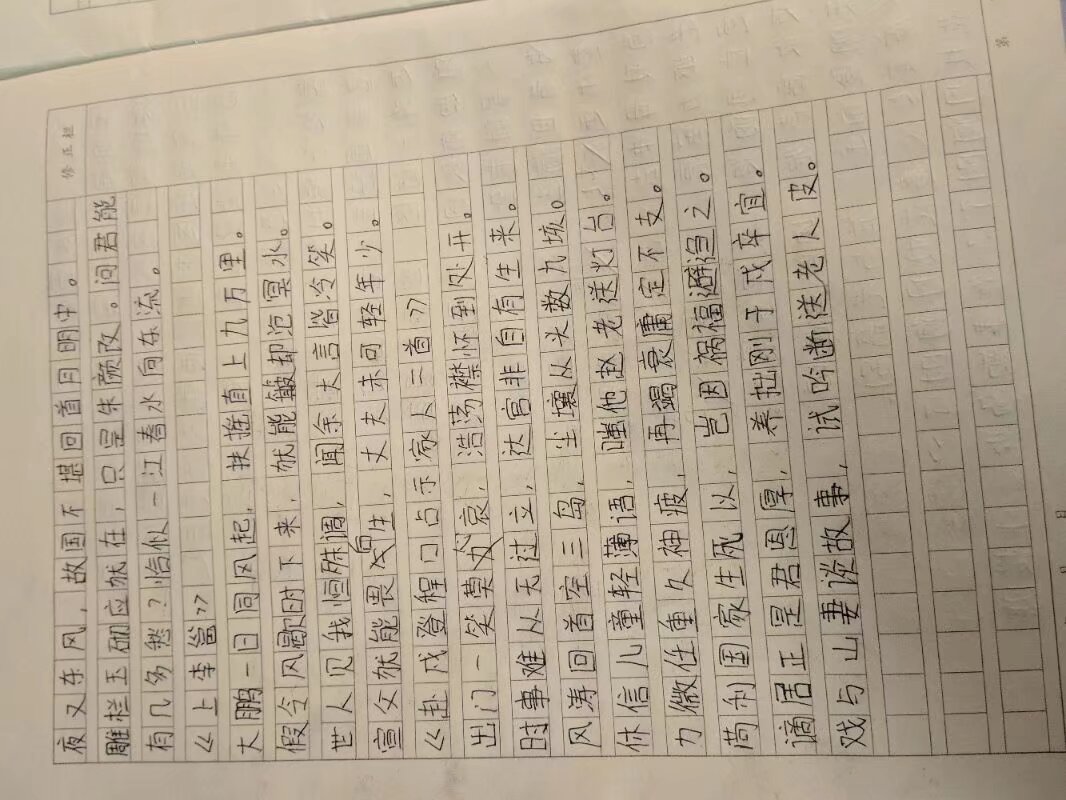 修正栏
夜又东风，故国不堪回首月明中。
雕栏玉砌应犹在，只是朱颜改。问君能
有几多愁？恰似一江春水向东流。
《上李邕》
大鹏一日同风起，扶摇直上九万里。
假令风歇时下来，犹能簸却沧冥水。
世人见我恒殊调，闻余大言皆冷笑。
宣父犹能畏生，丈夫未可轻年少。
《赴戍登程口占示家人二首》
出门一笑莫哀，浩荡襟怀到处开。
时事难从无过立，达官非自有生来。
风涛回首空三岛，尘壤从头数九垓。
休信儿童轻薄语，嗤他赵老送灯台。
力微任重久神疲，再竭衰庸定不支。
苟利国家生死以，岂因祸福避趋之。
谪居正是君恩厚，养拙刚于戍卒宜。
戏与山妻谈故事，试吟断送老人皮。
第